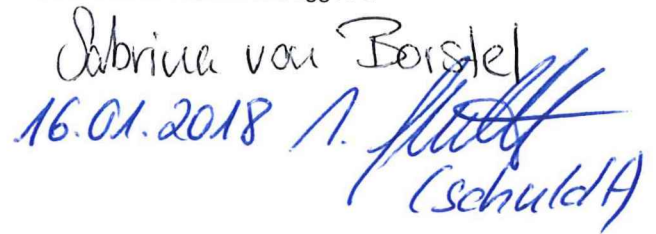 Sabrina von Borstel
16.01.2018 1.
(schuldt)